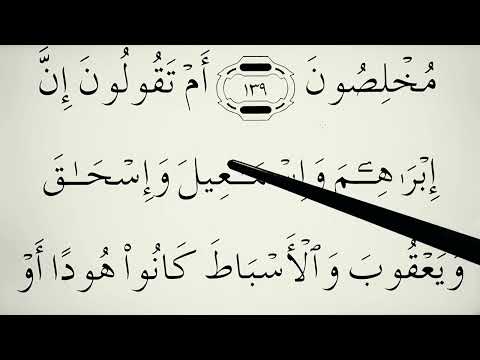 مُخْلِصُونَ ١٣٩ أَمْ تَقُولُونَ إِنَّ
إِبْرَٰهِـۧمَ وَإِسْمَـٰعِيلَ وَإِسْحَـٰقَ
وَيَعْقُوبَ وَٱلْأَسْبَاطَ كَانُوا۟ هُودًا أَوْ